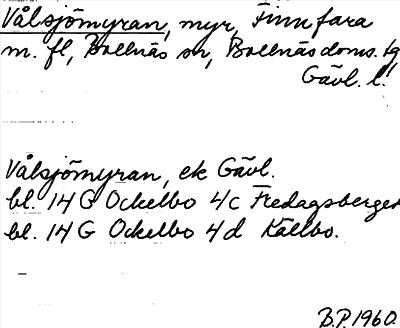 Vålsjömyran, myr, Finnfara
m. fl, Bollnäs sn, Bollnäs doms. tg
Gävl. l.
Vålsjömyran, ek Gävl.
bl. 14 G Ockelbo 4c Fredagsberget
bl. 14 G Ockelbo 4d Källbo.
B.P. 1960.